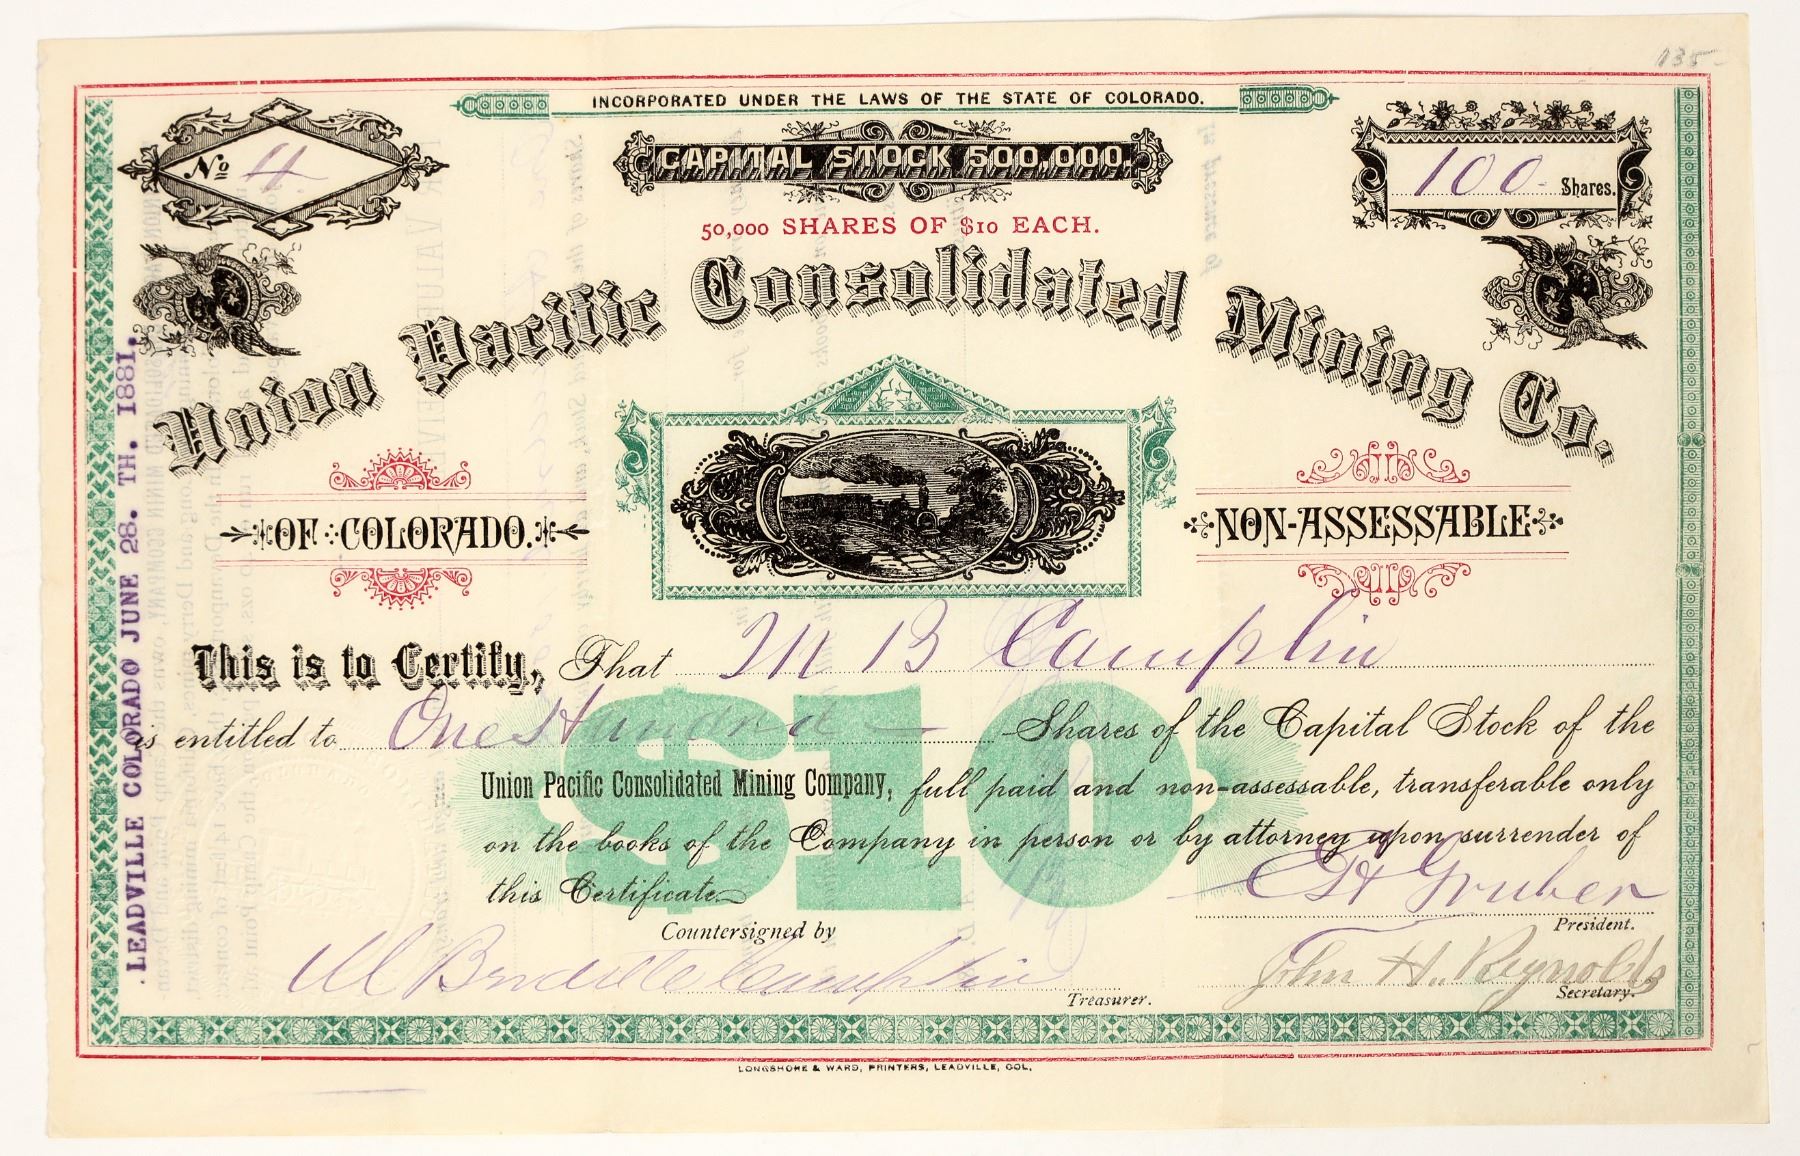 135-
INCORPORATED UNDER THE LAWS OF THE STATE OF COLORADO.
No 4
CAPITAL STOCK 500,000.
100- Shares.
50,000 SHARES OF $10 EACH.
Union Pacific Consolidated Mining Co.
OF COLORADO.
NON-ASSESSABLE
LEADVILLE COLORADO JUNE 28. TH. 1881.
This is to Certify, That M B Camplin
is entitled to One Hundred Shares of the Capital Stock of the
Union Pacific Consolidated Mining Company, full paid and non-assessable, transferable only
on the books of the Company in person or by attorney upon surrender of
this Certificate
$10
Countersigned by
Gruber
President.
M Burdette Camplin
Treasurer.
John H. Reynolds
Secretary.
LONGSHORE & WARD, PRINTERS, LEADVILLE, COL.